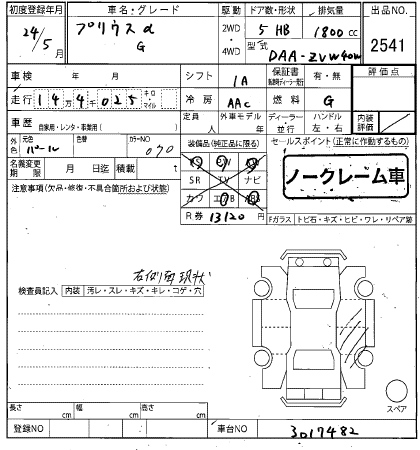 初度登録年月 車名・グレード 駆動 ドア数・形状 排気量 出品NO.
24/5月 プリウスα G 2WD・4WD 5 HB 1800cc 2541
型式 DAA-ZVW40W
車検 年 月 シフト IA 保証書 有・無 評価点
走行 14万4千025 キロ マイル 冷房 AAC 燃料 G
車歴 自家用・レンタ・事業用( ) 定員 人 外車モデル 年 ディーラー・並行 ハンドル 左・右 内装評価
外色 元色 パール 色替 カラーNO 070 装備品(純正品に限る) セールスポイント(正常に作動するもの)
名義変更期限 月 日迄 積載 t SR TV ナビ ノークレーム車
注意事項(欠品・修復・不具合箇所および状態) カワ エアB ABS
R券 13120円 Fガラス トビ石・キズ・ヒビ・ワレ・リペア跡
右側面現状
検査員記入 内装 汚レ・スレ・キズ・キレ・コゲ・穴
スペア
長さ cm 幅 cm 高さ cm
登録NO 車台NO 3017482